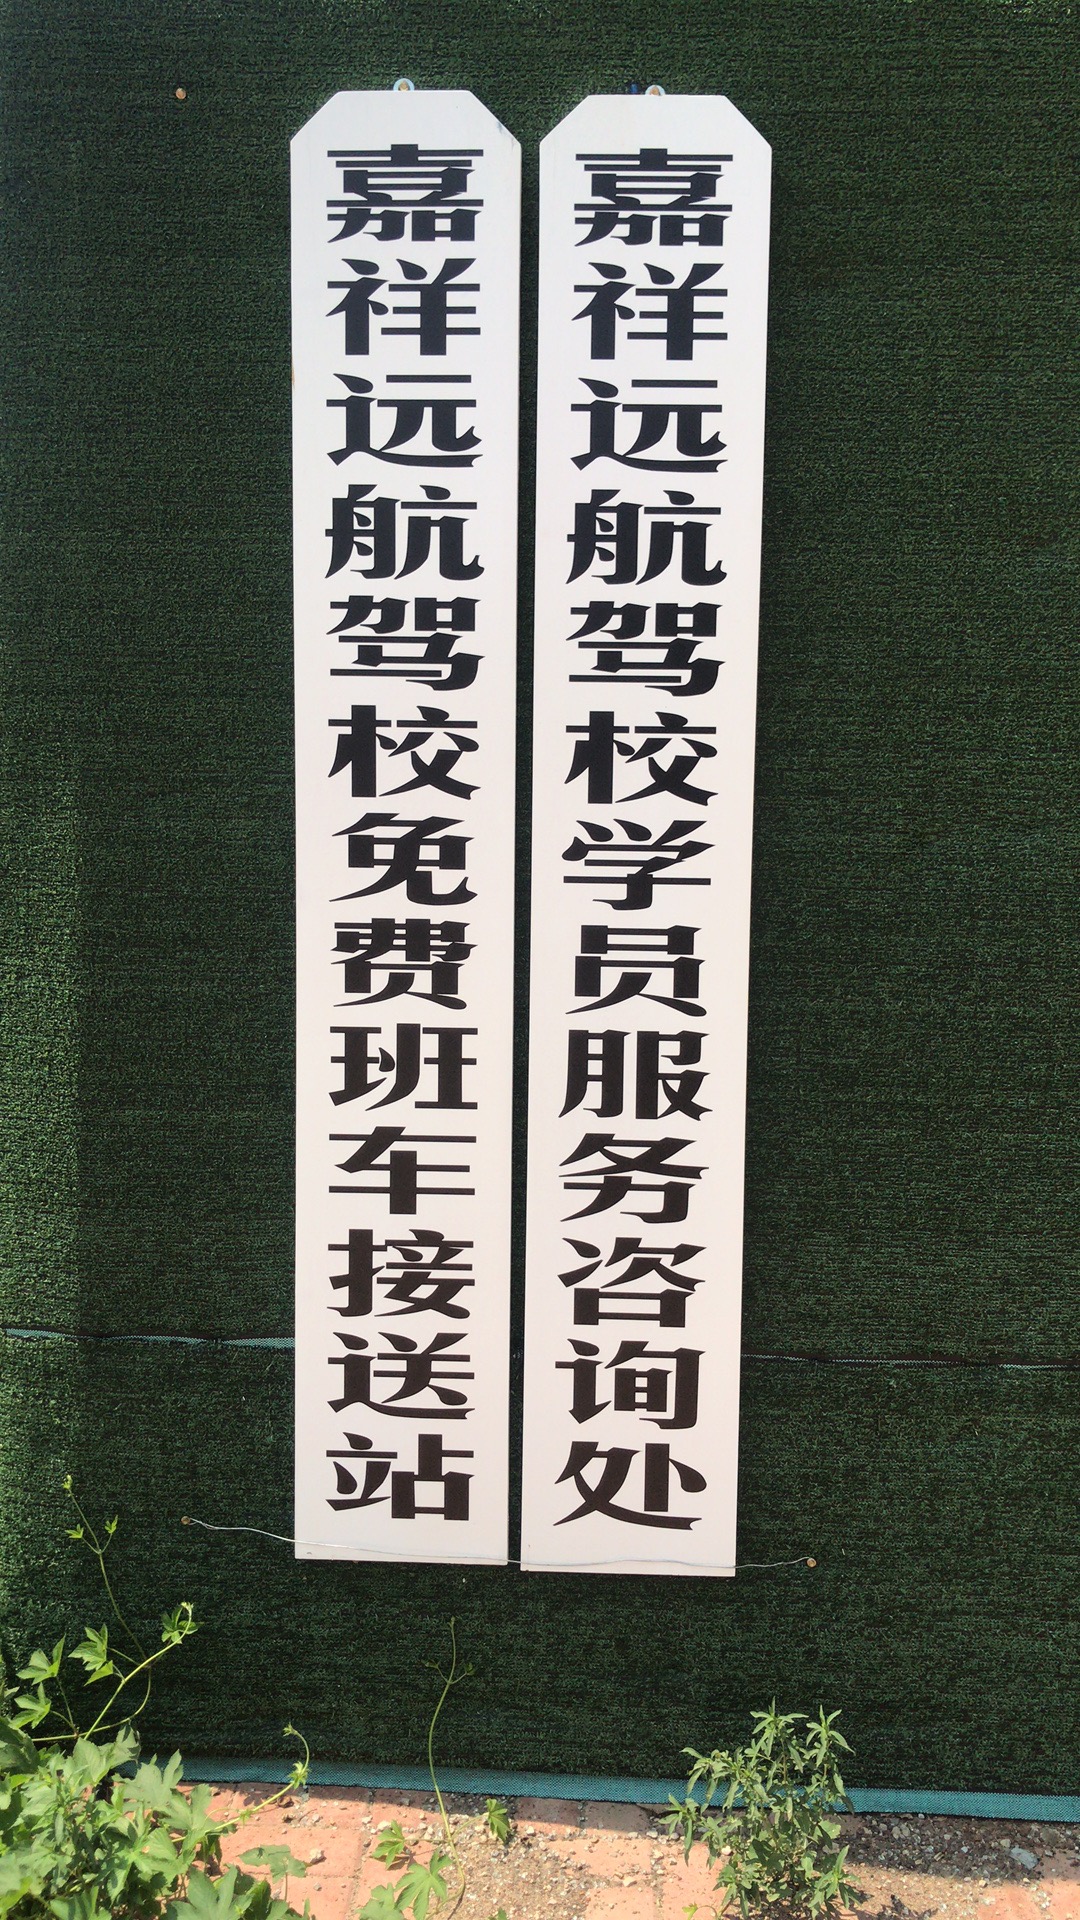 嘉祥远航驾校免费班车接送站
嘉祥远航驾校学员服务咨询处